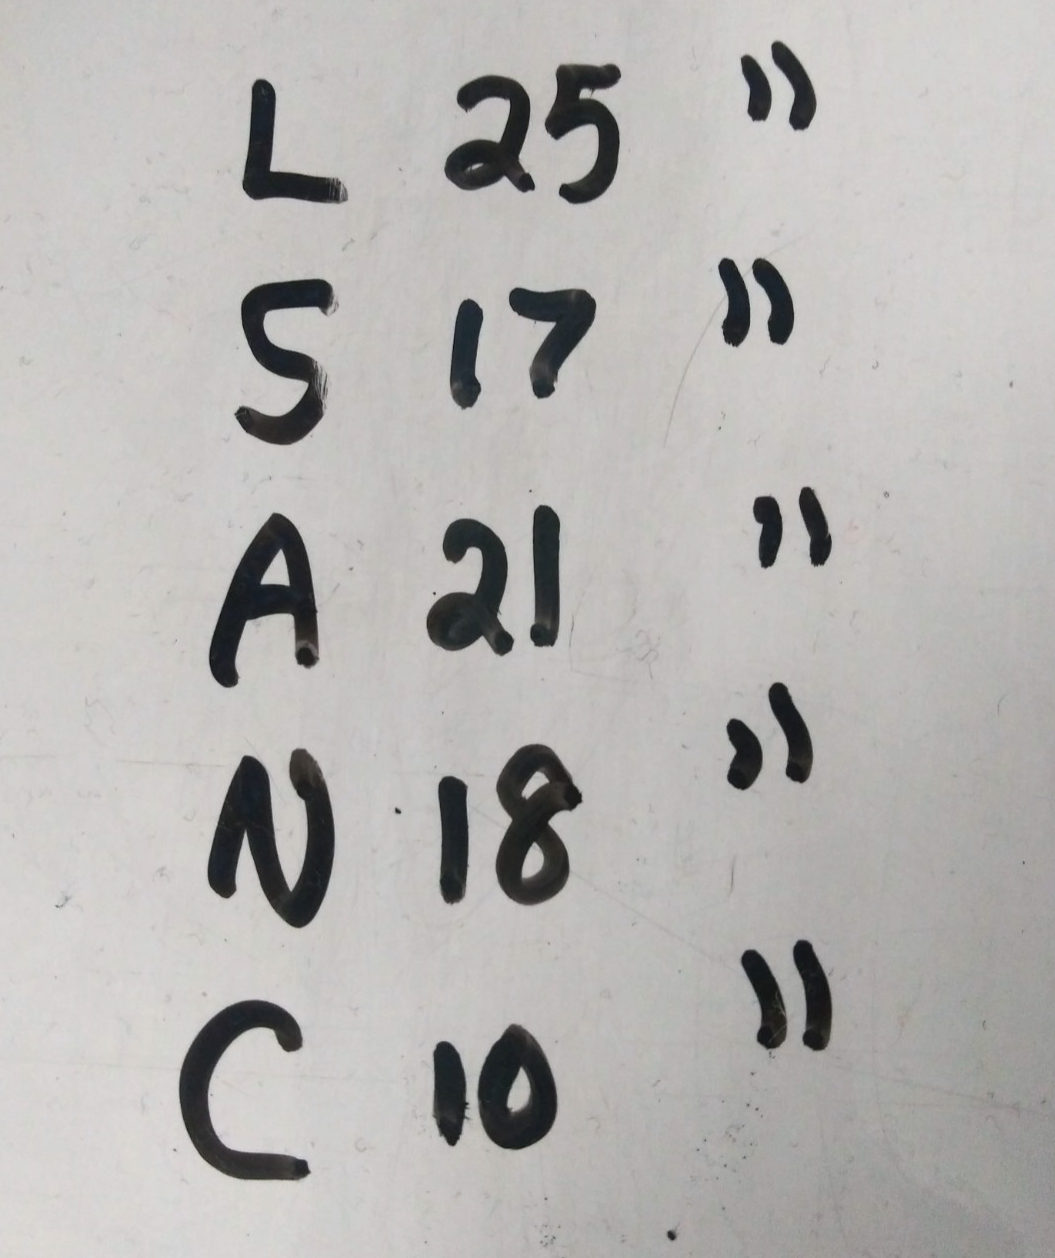 L 25 "
S 17 "
A 21 "
N 18 "
C 10 "